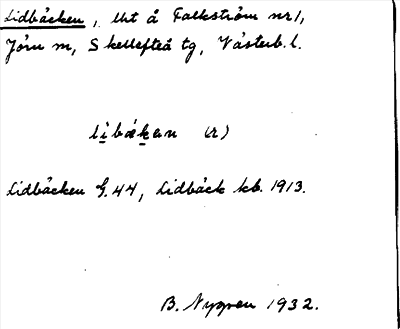 Lidbäcken, lht å Falkström nr 1,
Jörn sn, Skellefteå tg, Västerb. l.
libäkan (r)
Lidbäcken G. 44, Lidbäck kb. 1913.
B. Nygren 1932.